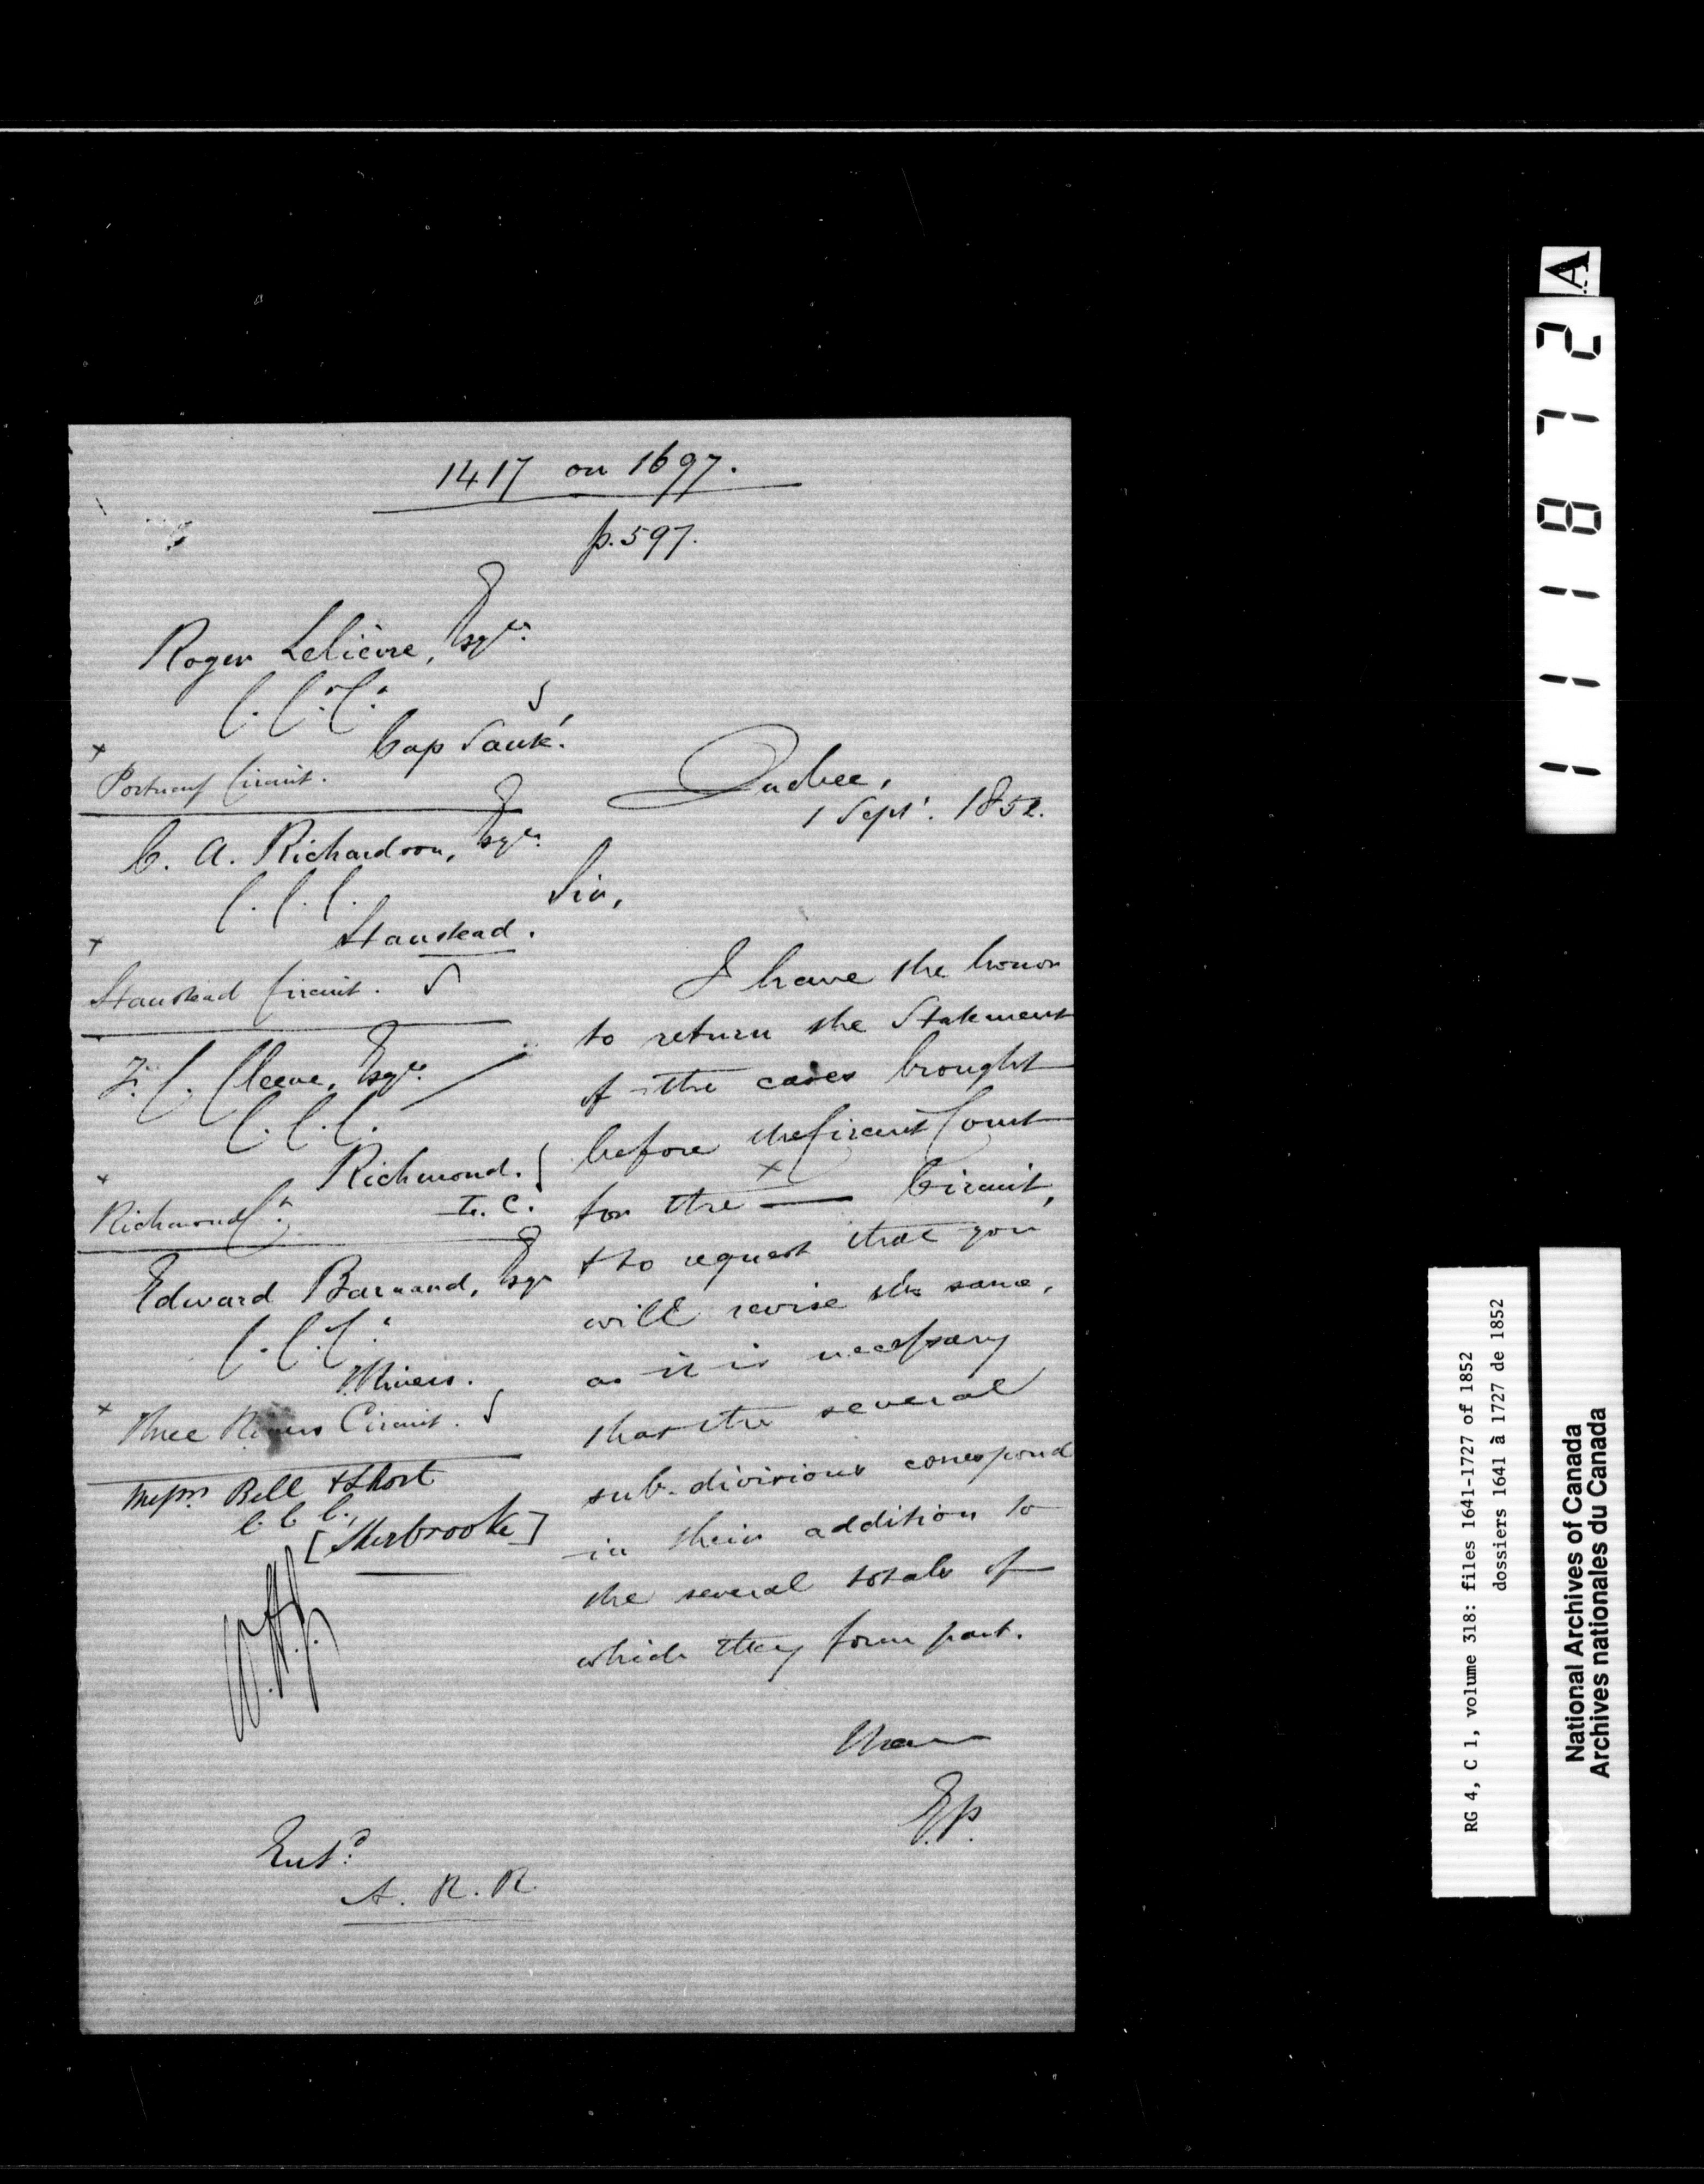 1417 on 1697.
p. 597.
Roger Lelièvre, Esqre.
C. C. C.
Cap Santé.
x
Portneuf Circuit.
C. A. Richardson, Esqre.
C. C. C.
Stanstead.
x
Stanstead Circuit.
F. C. Cleeve, Esqre.
C. C. C.
Richmond.
L. C.
x
Richmond Ct.
Edward Barnard, Esqr
C. C. C.
T. Rivers.
x
Three Rivers Circuit.
Messrs Bell & Short
C. C. C.,
[Sherbrooke]
Entd.
A. R. R.
Quebec,
1 Sept. 1852.
Sir,
I have the honor
to return the Statement
of the cases brought
before the Circuit Court
x
for the — Circuit,
& to request that you
will revise the same,
as it is necessary
that the several
sub-divisions correspond
in their addition to
the several totals of
which they form part.
I have
E.P.
A
111872
RG 4, C 1, volume 318: files 1641-1727 of 1852
dossiers 1641 à 1727 de 1852
National Archives of Canada
Archives nationales du Canada